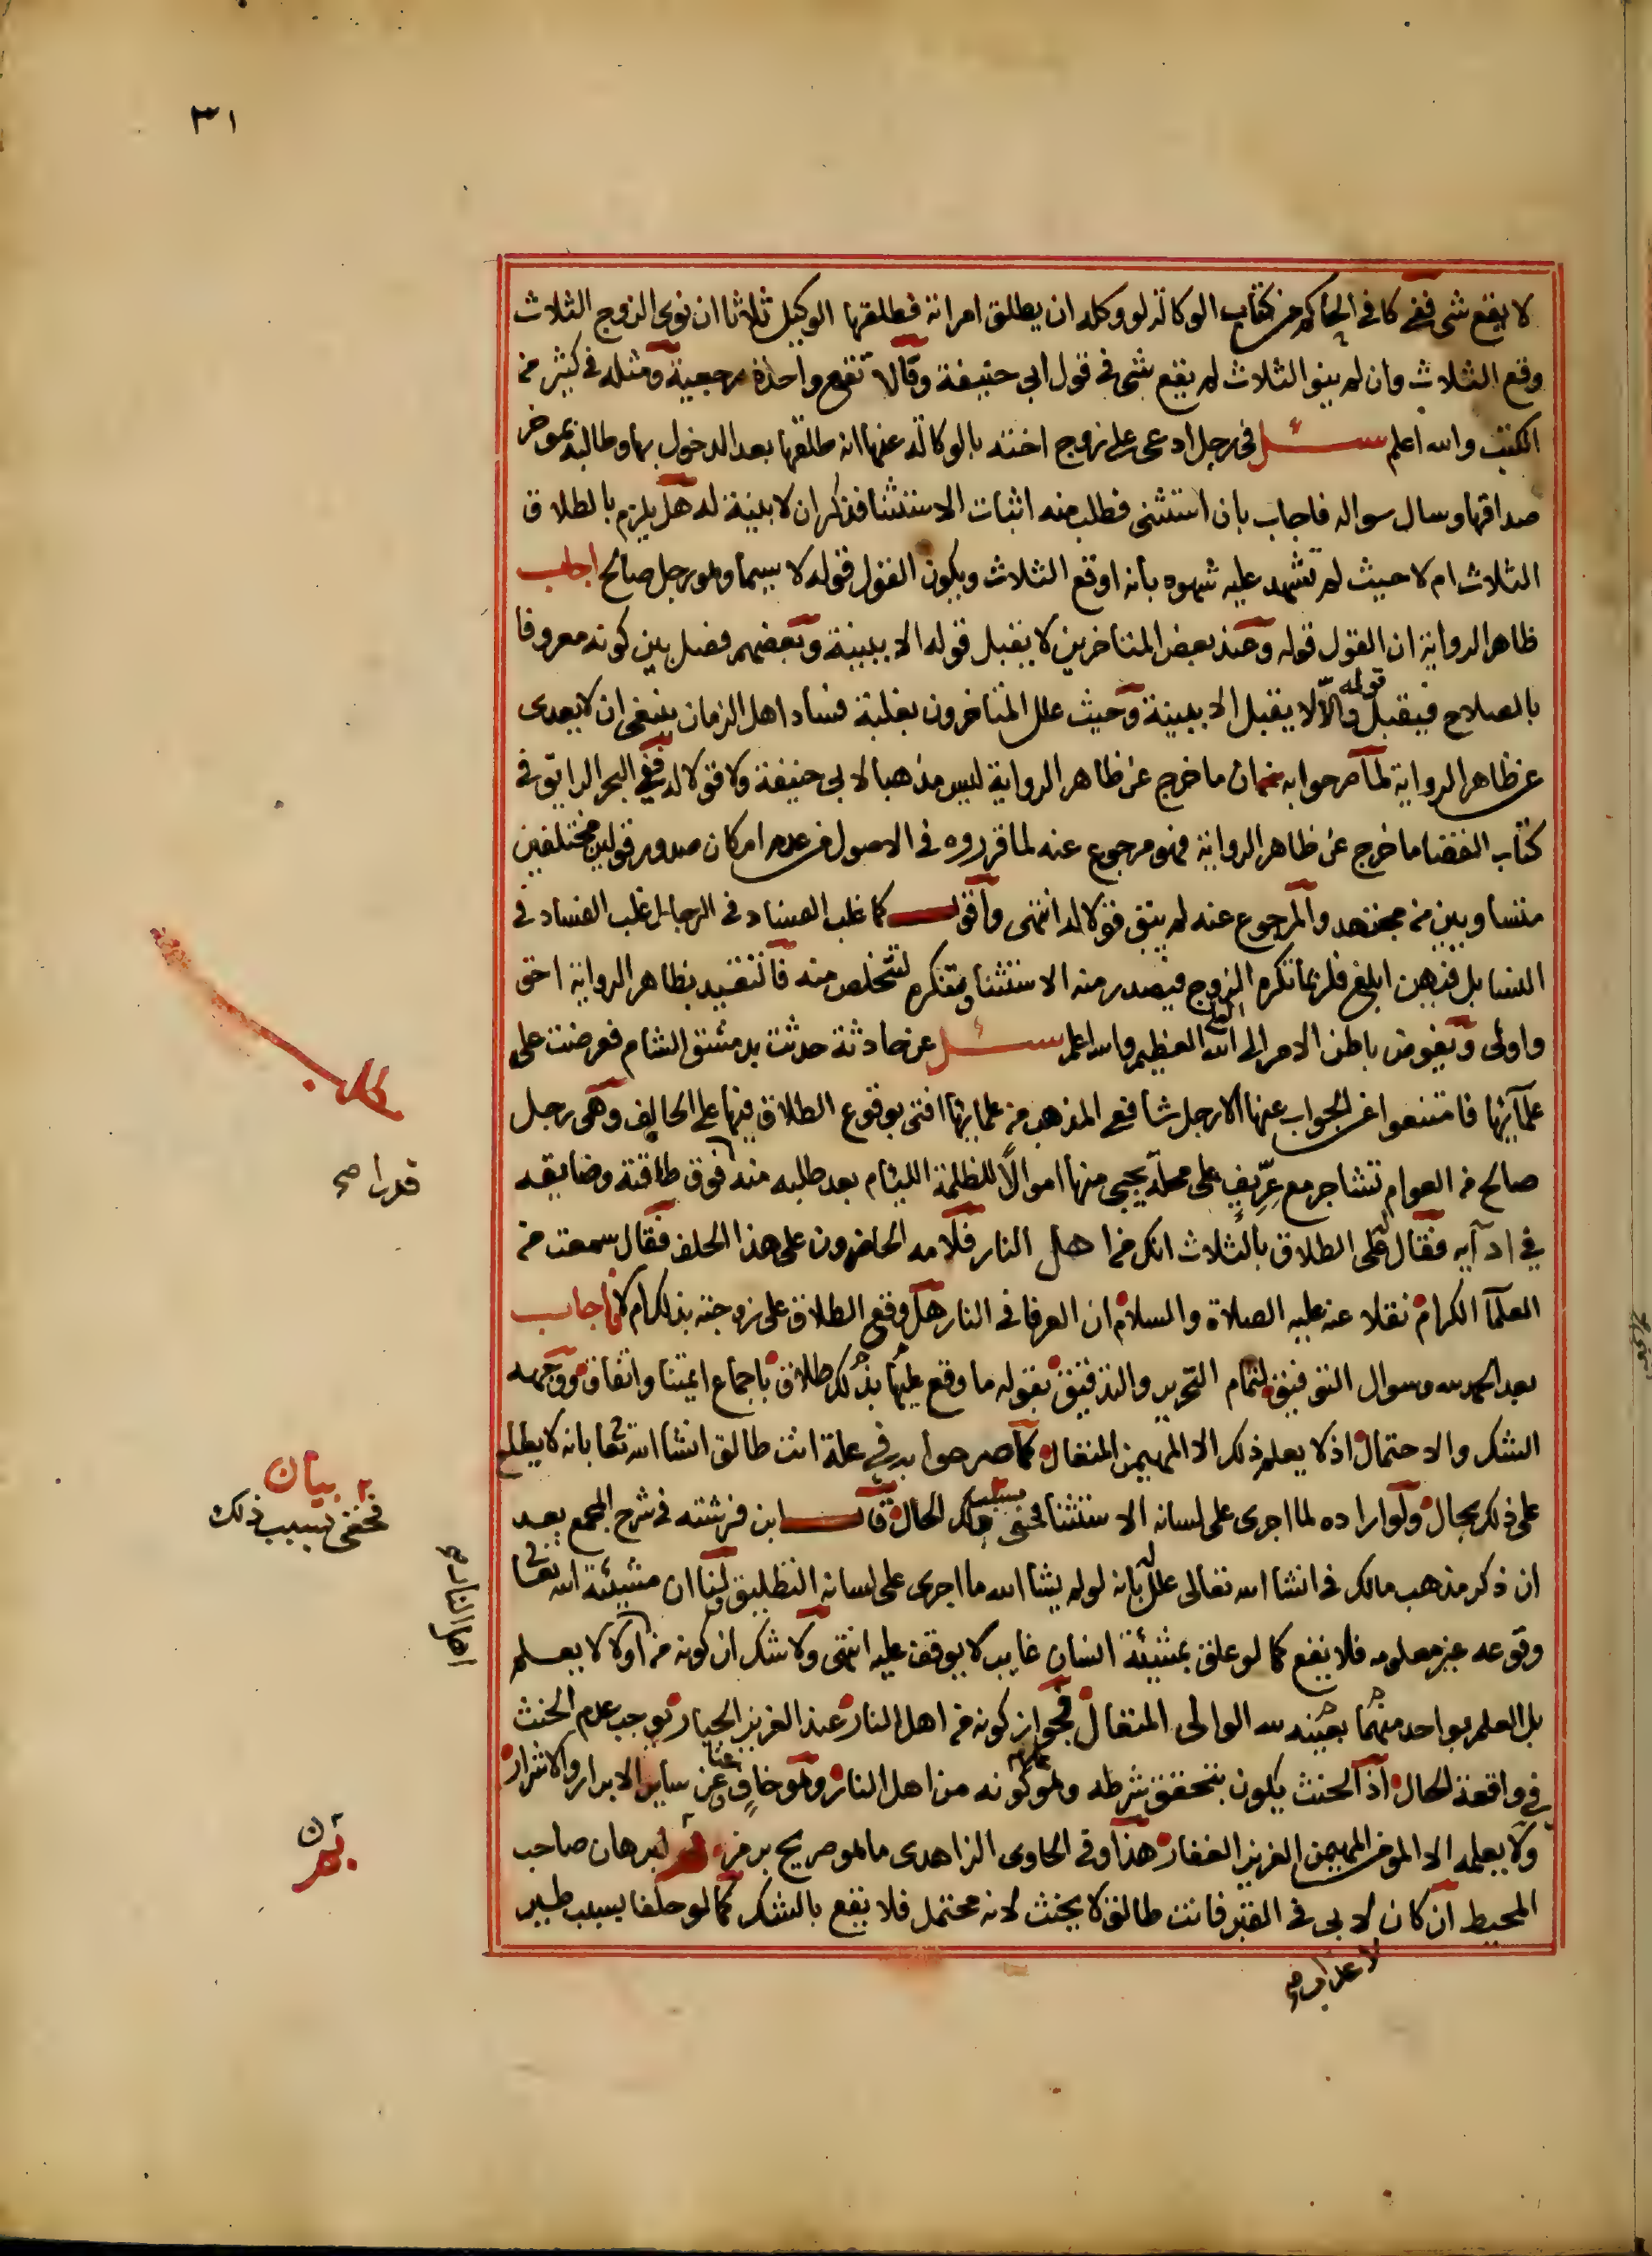 ٣١
لا يقع شي ففي كافي الحاكم من كتاب الوكالة لو وكله ان يطلق امراته فطلقها الوكيل ثلاثا ان نوى الزوج الثلاث
وقع الثلاث وان لم ينو الثلاث لم يقع شي في قول ابي حنيفة وقالا تقع واحدة رجعية ومثله في كثير من
الكتب والله اعلم سئل في رجل ادعى على زوج اخته بالوكالة عنها انه طلقها بعد الدخول بها وطالبه بموخر
صداقها وسال سواله فاجاب بان استثنى فطلب منه اثبات الاستثنا فذكر ان لا بينة له هل يلزم بالطلاق
الثلاث ام لا حيث لم تشهد عليه شهوه بانه اوقع الثلاث ويكون القول قوله لا سيما وهو رجل صالح اجاب
ظاهر الرواية ان القول قوله وعند بعض المتاخرين لا يقبل قوله الا ببينة وبعضهم فصل بين كونه معروفا
بالصلاح فيقبل قوله والا لا يقبل الا ببينة وحيث علل المتاخرون بغلبة فساد اهل الزمان ينبغي ان لا يعدى
عن ظاهر الرواية لما صرحوا به من ان ما خرج عن ظاهر الرواية ليس مذهبا لابي حنيفة ولا قولا له ففي البحر الرايق في
كتاب القضا ما خرج عن ظاهر الرواية فهو مرجوع عنه لما قرروه في الاصول من عدم امكان صدور قولين مختلفين
متساويين من مجتهد والمرجوع عنه لم يبق قولا له انتهى واقول كما غلب الفساد في الرجال غلب الفساد في
النسا بل فيهن ابلغ فلربما تكره الزوج فيصدر منه الاستثنا وتنكره لتتخلص منه فالتقييد بظاهر الرواية احق
واولى ويفوض باطن الامر الى الله العلي العظيم والله اعلم سئل عن حادثة حدثت بدمشق الشام فعرضت على
علمآئها فامتنعوا عن الجواب عنها الا رجل شافعي المذهب من علمائها افتى بوقوع الطلاق فيها على الحالف وهي رجل
صالح من العوام تشاجر مع عِرِّيفٍ على محلة يجبي منها اموالا للظلمة الليئام بعد طلبه منه فوق طاقته وضايقه
في ادآيه فقال له على الطلاق بالثلاث انك من اهل النار فلامه الحاضرون على هذا الحلف فقال سمعت من
العلمآ الكرام نقلا عنه عليه الصلاة والسلام ان العرفا في النار هل وقع الطلاق على زوجته بذلك ام لا فاجاب
بعد الحمد لله وسوال التوفيق لتمام التحرير والتدقيق بقوله ما وقع عليها بذلك طلاق باجماع ايمتنا واتفاق ووجهه
الشك والاحتمال اذ لا يعلم ذلك الا المهيمن المتعال كما صرحوا به في علة انت طالق انشا الله تعا بانه لا يطلع
على ذلك بحال ولو اراده لما اجرى على لسانه الاستثنا فخفي بسبب ذلك الحال قال ابن فرشته في شرح المجمع بعد
ان ذكر مذهب مالك في انشا الله تعالى علل له بانه لو لم يشا الله ما اجرى على لسانه التطليق ولنا ان مشيئة الله تعا
وقوعه غير معلومه فلا يقع كما لو علق بمشيئة انسان غايب لا يوقف عليه انتهى ولا شك ان كونه من اولا لا يعلم
بل العلم بواحد منهما بعينه لله الوالى المتعال فجواز كونه من اهل النار عند العزيز الجبار توجب عدم الحنث
في واقعة الحال اذ الحنث يكون بتحقق شرطه وهو عدم كونه من اهل النار وهو خافٍ عنا وعن ساير الابرار والاشرار
ولا يعلمه الا المومن المهيمن العزيز الغفار هذا وفي الحاوى الزاهدى ما هو صريح برمز لبرهان صاحب
المحيط ان كان لابى فى القبر فانت طالق لا يحنث لانه محتمل فلا يقع بالشك كما لو حلفا بسبب طير
قدرا صح
بيان
فخفي بسبب ذلك
اهل النار صح
لا عذاب صح